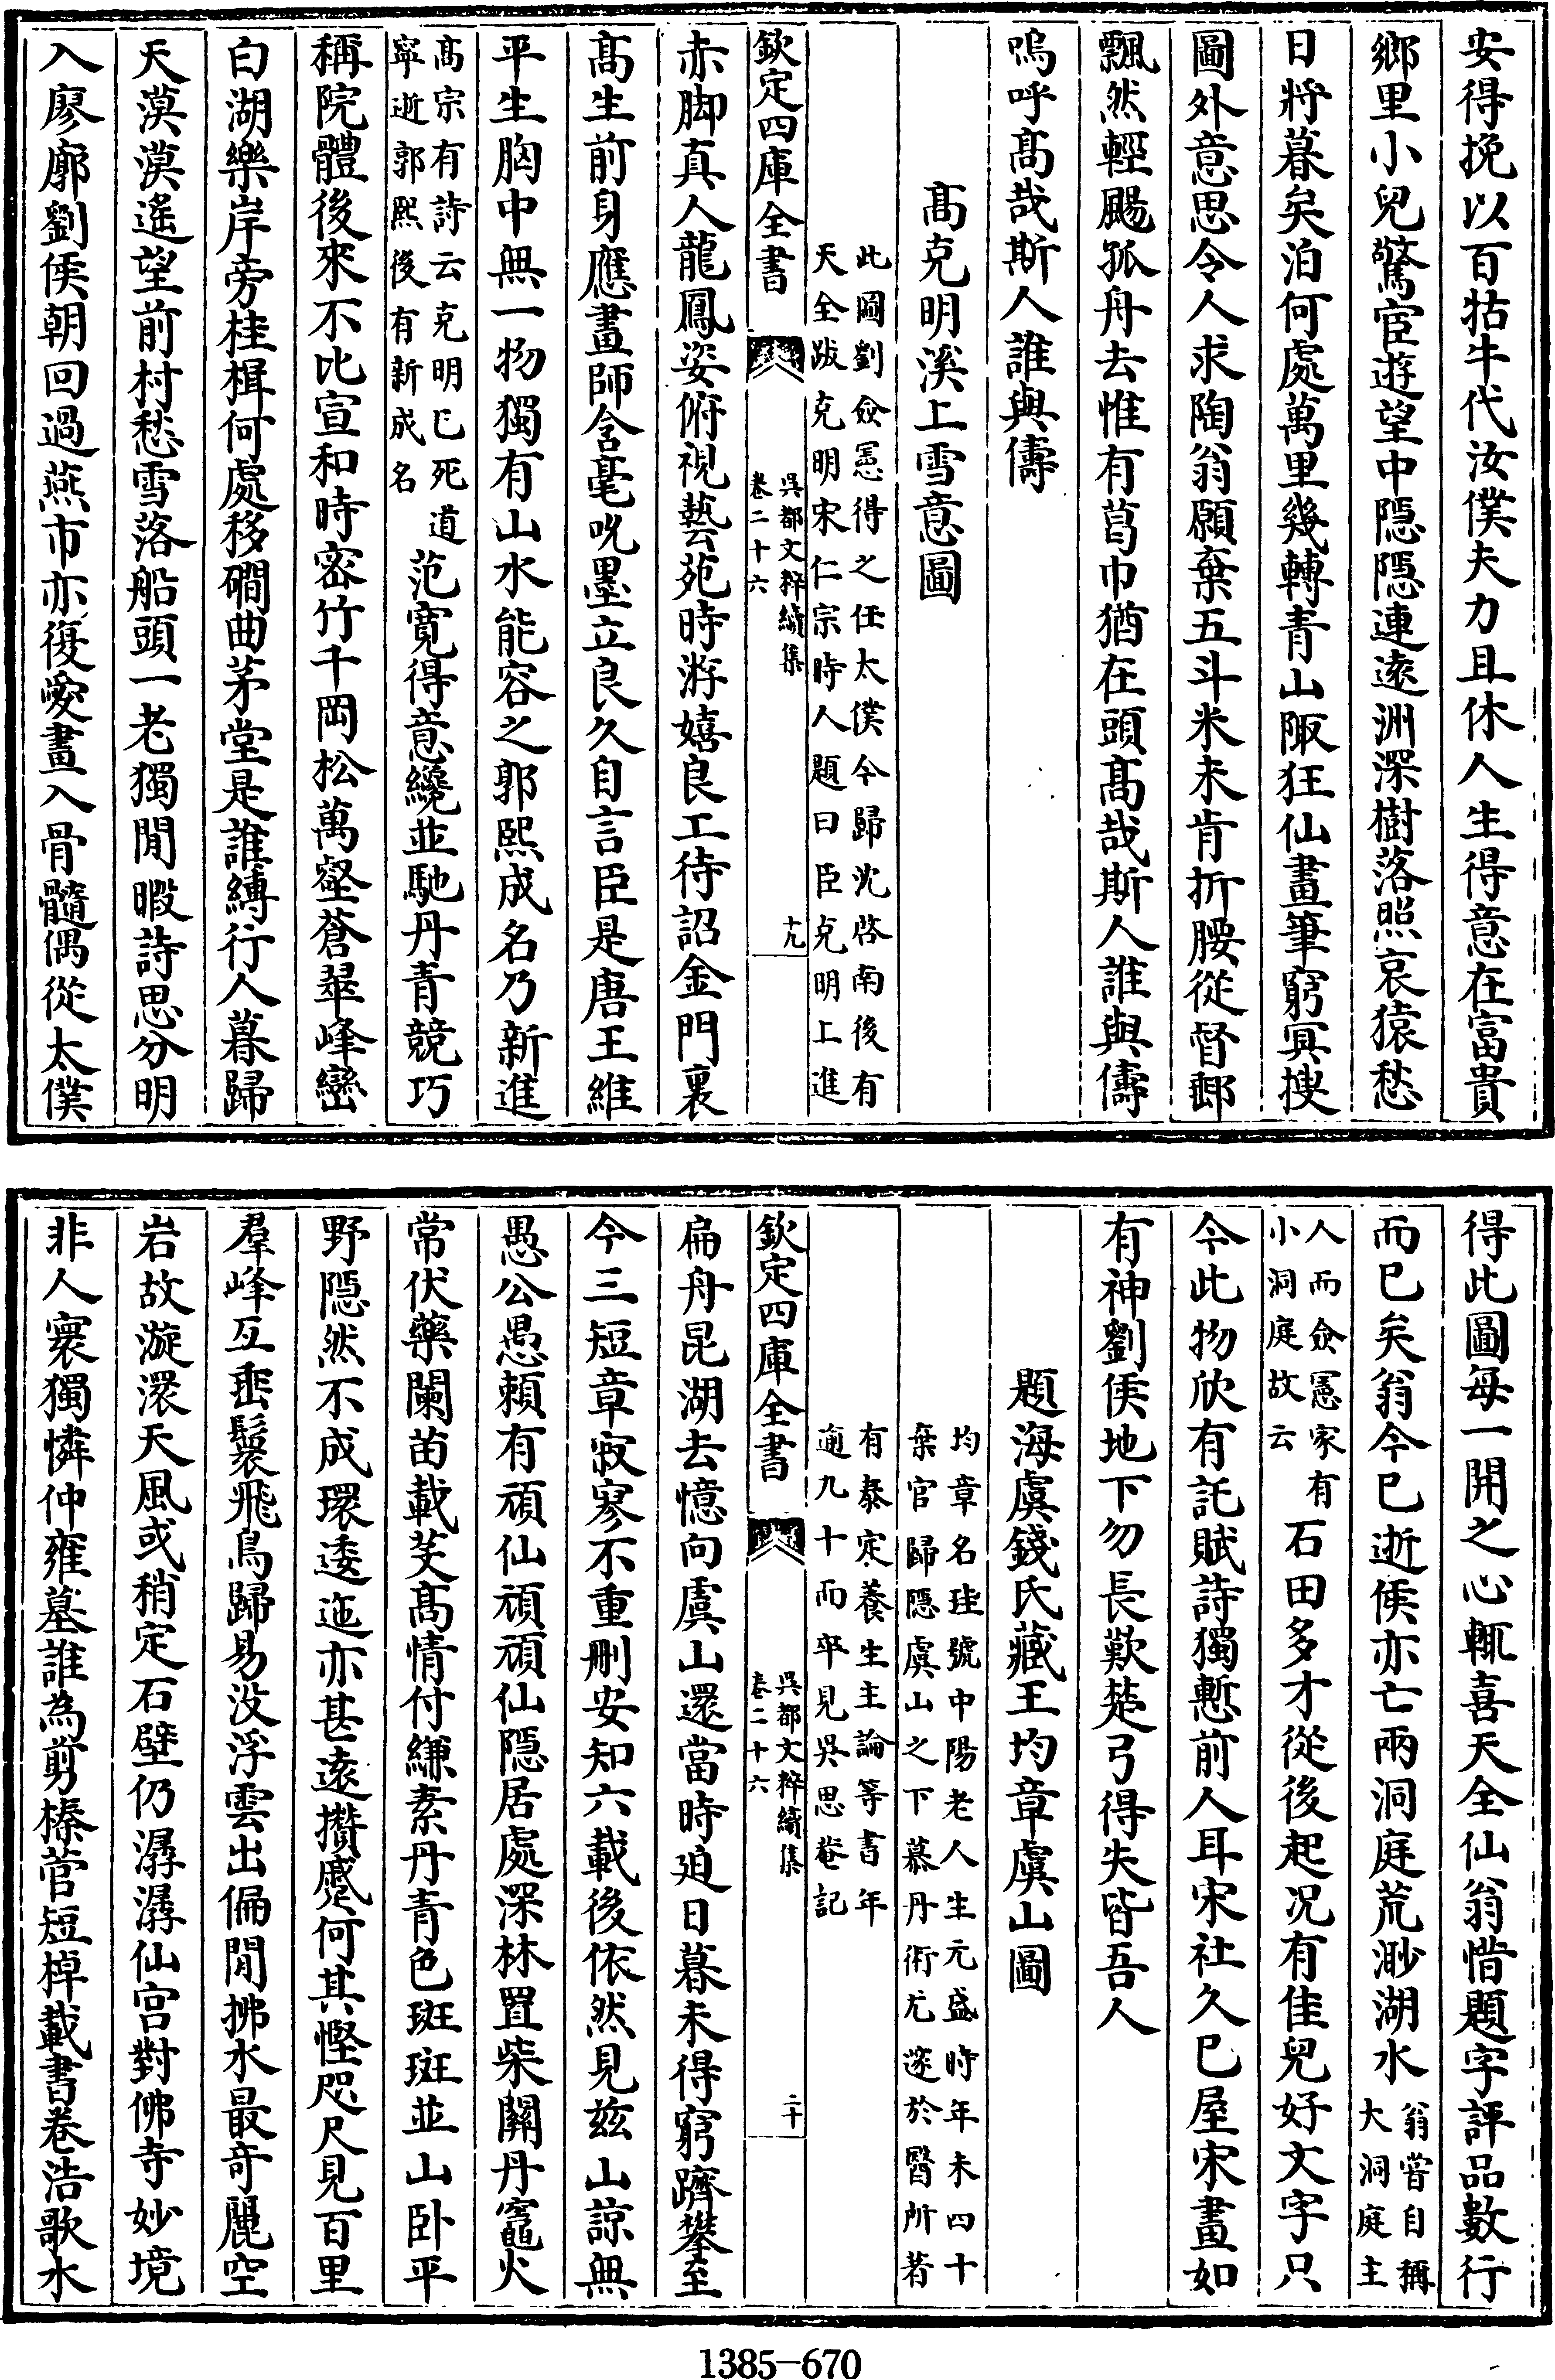 安得挽以百牯牛代汝僕夫力且休人生得意在富貴
鄉里小兒驚宦遊望中隱隱連遠洲深樹落照哀猿愁
日將暮矣泊何處萬里幾轉青山陬狂仙畫筆窮冥搜
圖外意思令人求陶翁願棄五斗米未肯折腰從督郵
飄然輕颺孤舟去惟有葛巾猶在頭髙哉斯人誰與儔
嗚呼髙哉斯人誰與儔
髙克明溪上雪意圖
此圖劉僉憲得之任太僕今歸沈啓南後有
天全跋克明宋仁宗時人題曰臣克明上進
欽定四庫全書
吳都文粹續集
卷二十六
十九
赤脚真人龍鳳姿俯視藝苑時游嬉良工待詔金門裏
髙生前身應畫師含毫吮墨立良久自言臣是唐王維
平生胸中無一物獨有山水能容之郭熙成名乃新進
髙宗有詩云克明已死道
寧逝郭熙後有新成名
范寛得意纔並馳丹青競巧
稱院體後來不比宣和時密竹千岡松萬壑蒼翠峰巒
白湖樂岸旁桂楫何處移磵曲茅堂是誰縛行人暮歸
天漠漠遙望前村愁雪落船頭一老獨閒暇詩思分明
入廖廓劉侯朝回過燕市亦復愛畫入骨髓偶從太僕
得此圖每一開之心輒喜天全仙翁惜題字評品數行
而已矣翁今已逝侯亦亡兩洞庭荒渺湖水
翁嘗自稱
大洞庭主
人而僉憲家有
小洞庭故云
石田多才從後起况有佳兒好文字只
今此物欣有託賦詩獨慙前人耳宋社久已屋宋畫如
有神劉侯地下勿長歎楚弓得失皆吾人
題海虞錢氏藏王均章虞山圖
均章名珪號中陽老人生元盛時年未四十
棄官歸隱虞山之下慕丹術尤邃於醫所著
有泰定養生主論等書年
逾九十而卒見吳思菴記
欽定四庫全書
吳都文粹續集
卷二十六
二十
扁舟昆湖去憶向虞山還當時廹日暮未得窮躋攀至
今三短章寂寥不重刪安知六載後依然見兹山諒無
愚公愚賴有頑仙頑頑仙隱居處深林置柴關丹竈火
常伏藥闌苗載芟髙情付縑素丹青色斑斑並山卧平
野隱然不成環逶迤亦甚遠攢蹙何其慳咫尺見百里
羣峰互垂鬟飛鳥歸易没浮雲出偏閒拂水最竒麗空
岩故漩澴天風或稍定石壁仍潺潺仙宫對佛寺妙境
非人寰獨憐仲雍墓誰為剪榛菅短棹載書卷浩歌水
1385-670